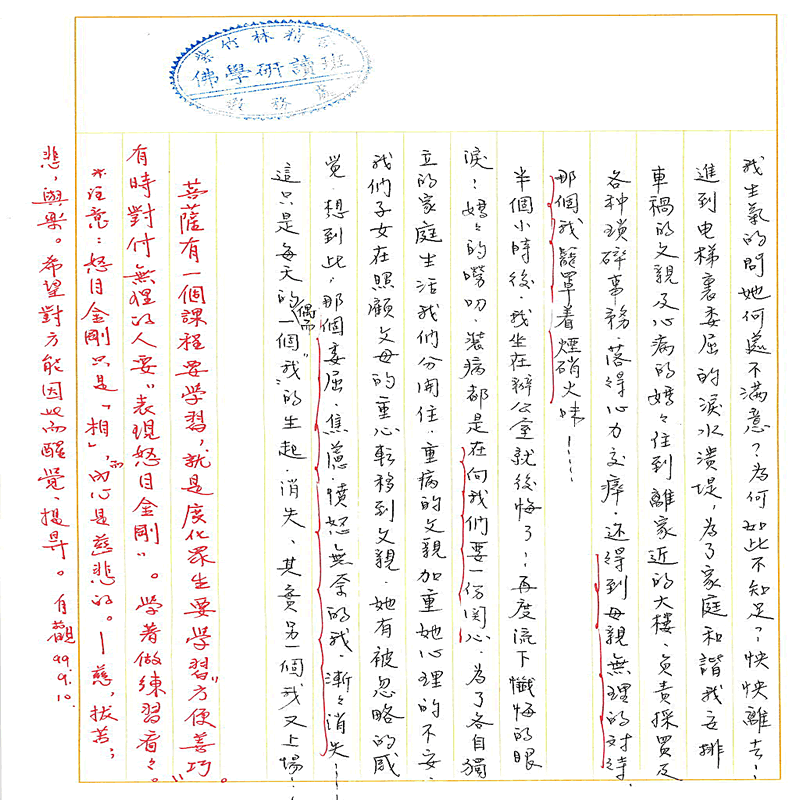 紫竹林精舍
佛學研讀班
教務處
我生氣的問她何處不滿意?為何如此不知足?怏怏離去!
進到电梯裏委屈的淚水潰堤,為了家庭和諧我安排
車禍的父親及心病的媽々住到離家近的大樓、負責採買及
各种瑣碎事務、落得心力交瘁、还得到母親無理的对待、
那個我籠罩着煙硝火味!……
半個小時後、我坐在辦公室就後悔了!再度流下懺悔的眼
淚!媽々的嘮叨、裝病都是在向我們要一份関心、為了各自獨
立的家庭生活我們分開住、重病的父親加重她心理的不安、
我們子女在照顧父母的重心転移到父親、她有被忽略的感
覚、想到此,那個委屈、焦慮、憤怒無奈的我、漸々消失……
這只是每天的"偶而"一個"我"的生起、消失、其實另一個"我"又上場……
菩薩有一個課程要學習,就是度化眾生要學習"方便善巧"。
有時對付無理的人要"表現怒目金剛"。學著做練習看々。
*注意:怒目金剛只是「相」,而內心是慈悲的。—慈,拔苦;
悲,與樂。希望對方能因此而醒覺、提昇。 自觀 99.9.10.